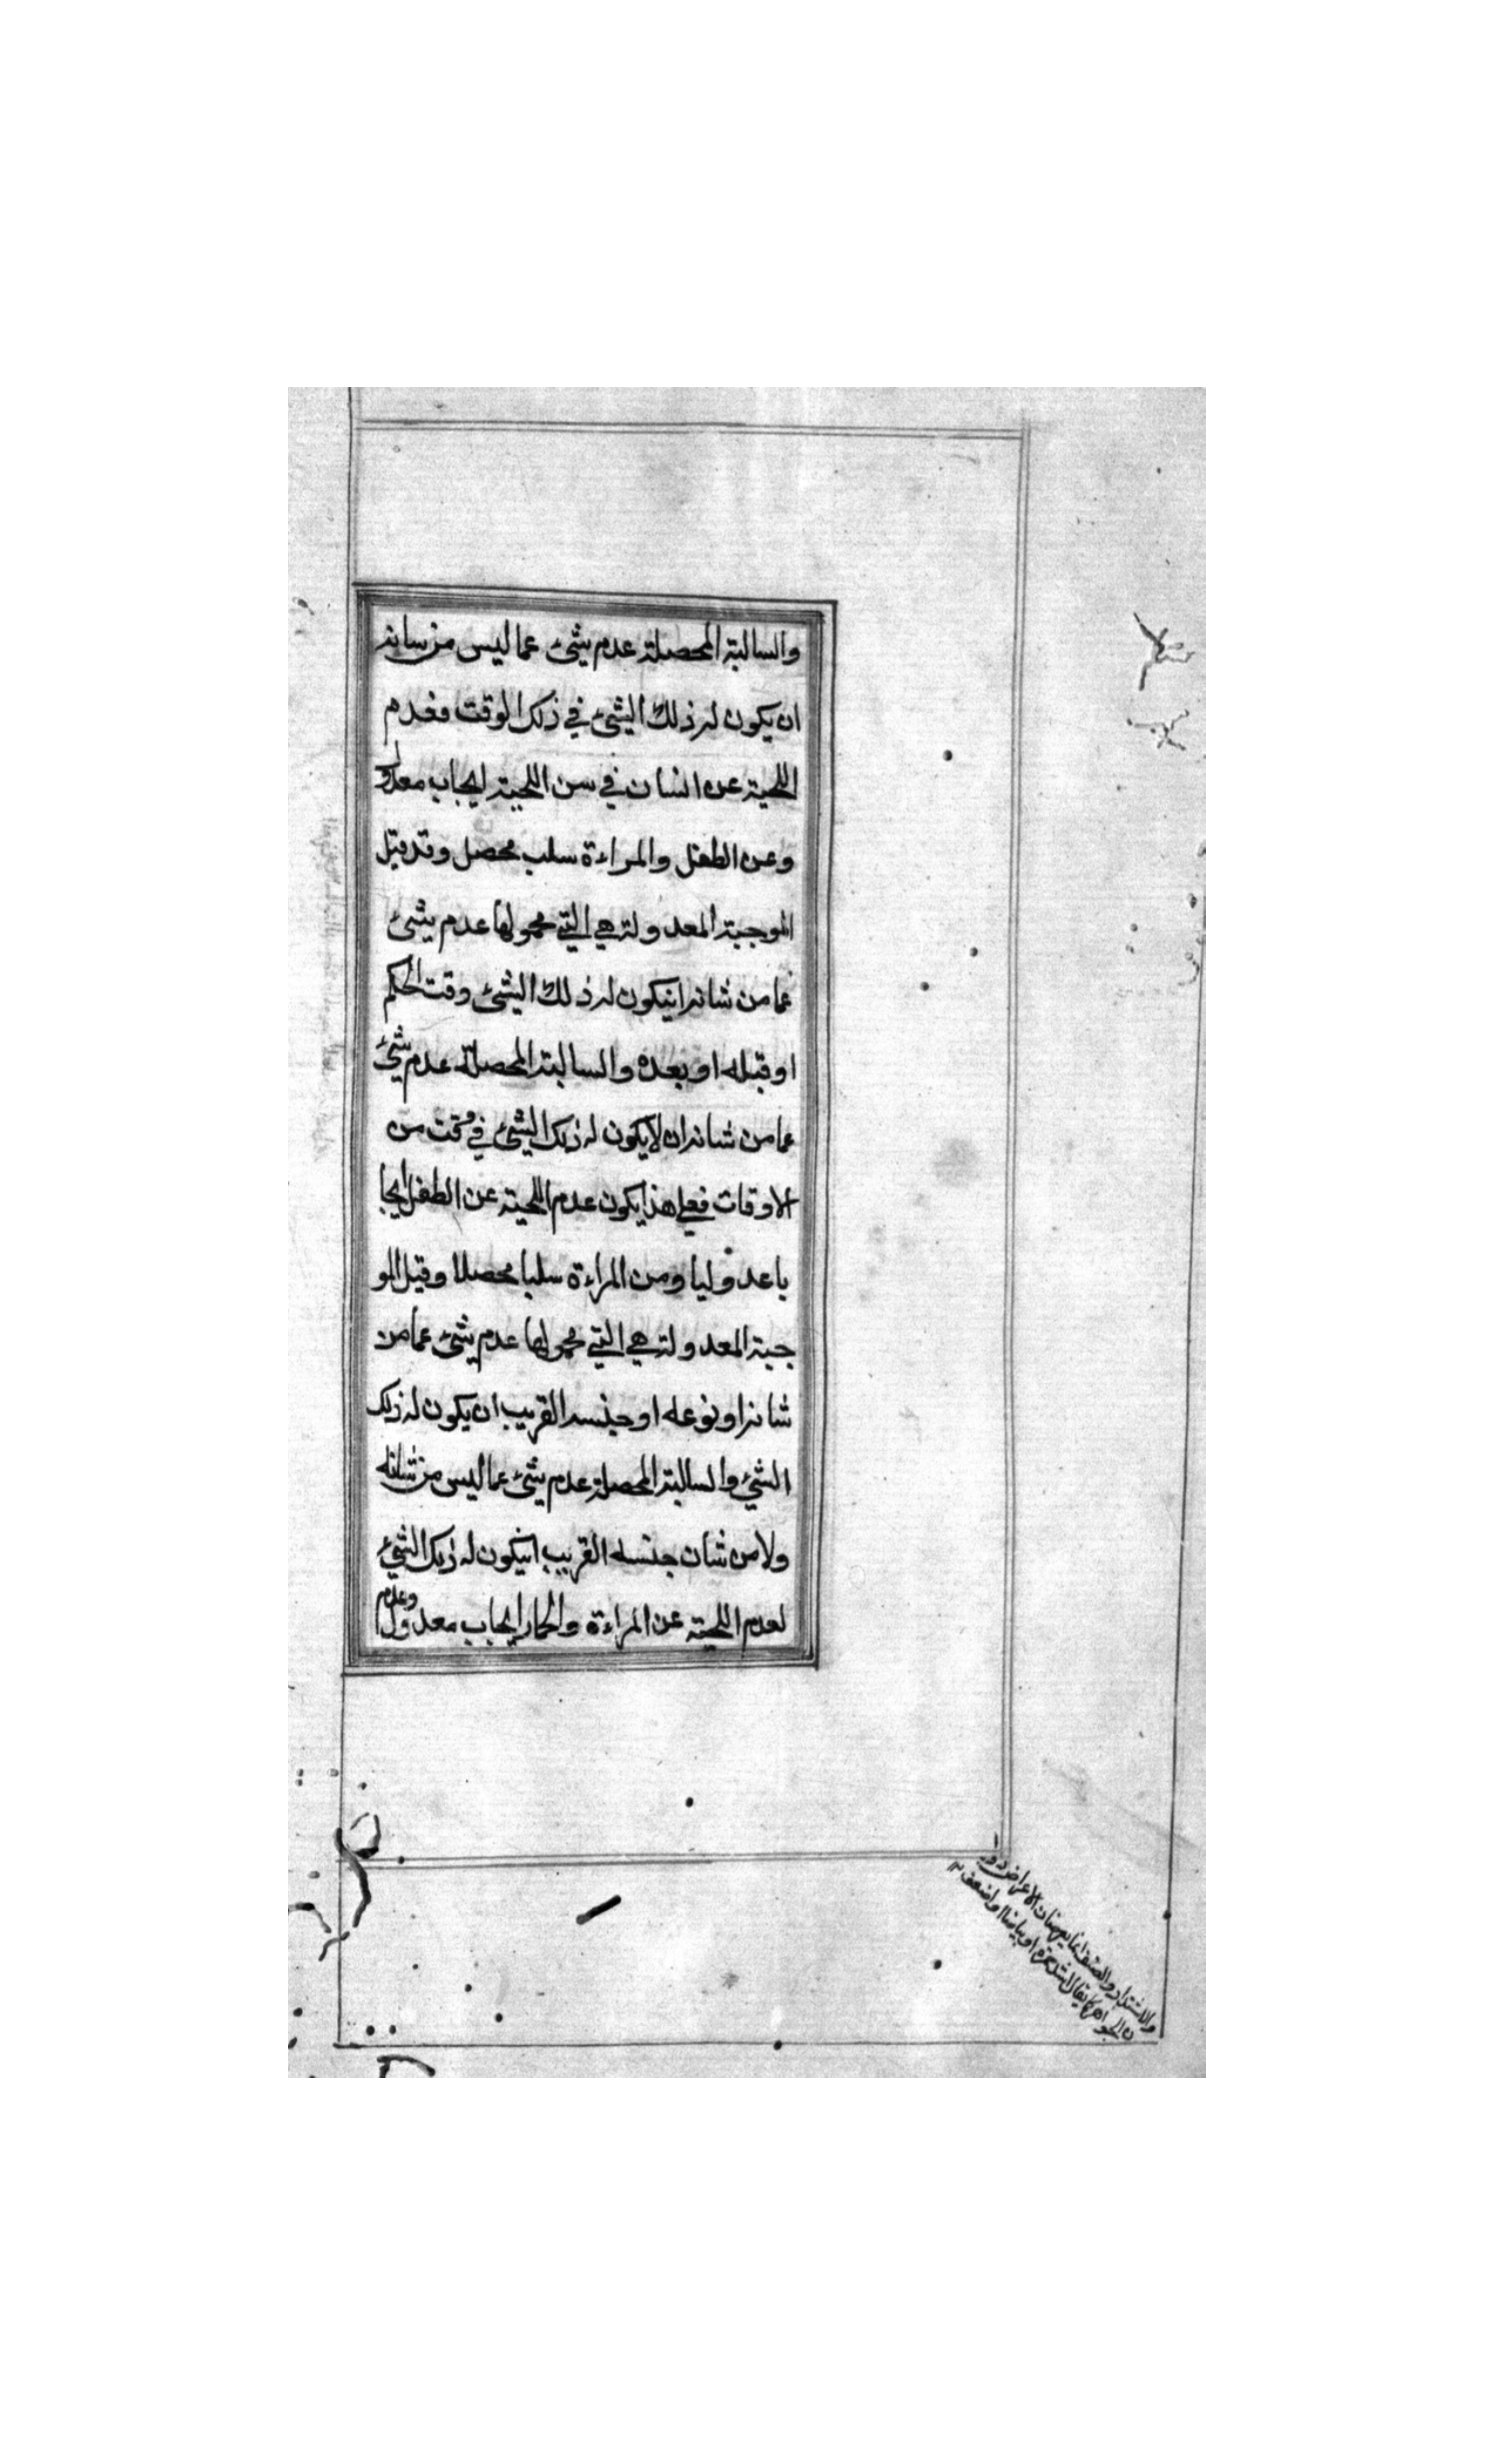 والسالبة المحصلة عدم شئ عما ليس من سانه
ان يكون له ذلك الشئ في ذلك الوقت فعدم
اللحية عن انسان في سن اللحية ايجاب معدول
وعن الطفل والمراءة سلب محصل وقد قيل
الموجبة المعدولة هي التي محمولها عدم شئ
عما من شانه انيكون له ذلك الشئ وقت الحكم
او قبله او بعده والسالبة المحصلة عدم شئ
عما من شانه ان لا يكون له ذلك الشئ في وقت من
الاوقات فعلى هذا يكون عدم اللحية عن الطفل ايجا
با عدوليا ومن المراءة سلبا محصلا وقيل المو
جبة المعدولة هي التي محمولها عدم شئ عما من
شانه او نوعه او جنسه القريب ان يكون له ذلك
الشئ والسالبة المحصلة عدم شئ عما ليس من شانه
ولا من شان جنسه القريب انيكون له ذلك الشئ
لعدم اللحية عن المراءة والحمار ايجاب معدول وعدم
والاشتداد والضعف انما يعرضان الاعراض دو
ن الجواهر كما يقال اشد حمرة او بياضا او اضعف ١٢